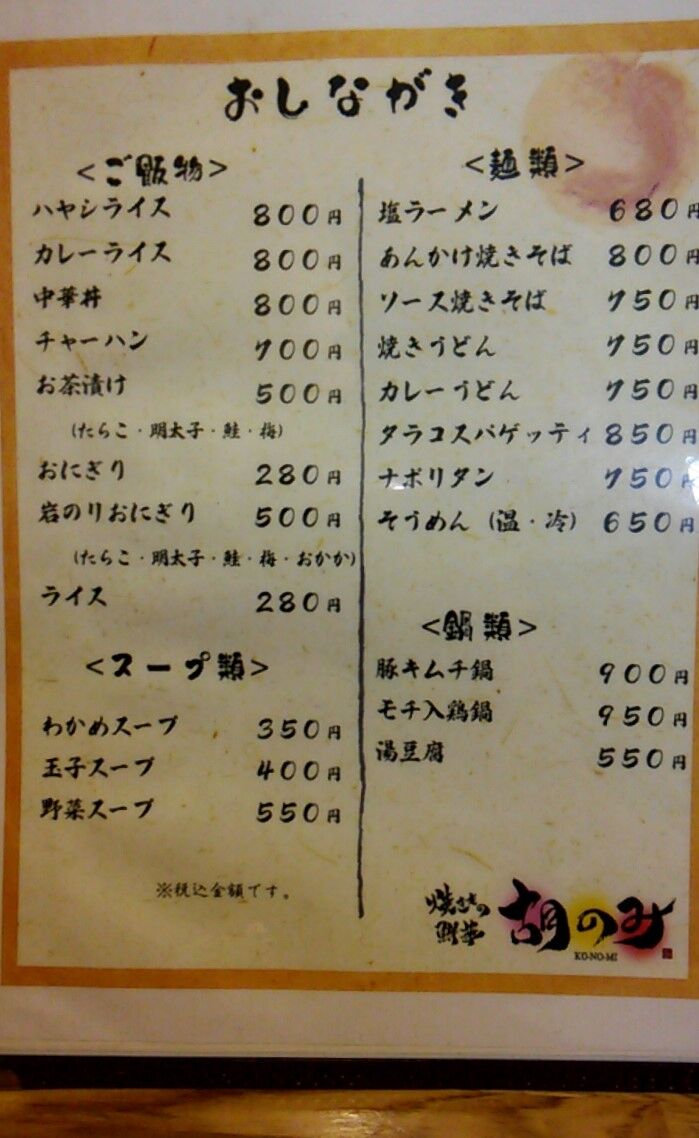 おしながき
<ご飯物>
ハヤシライス 800円
カレーライス 800円
中華丼 800円
チャーハン 700円
お茶漬け 500円
(たらこ・明太子・鮭・梅)
おにぎり 280円
岩のりおにぎり 500円
(たらこ・明太子・鮭・梅・おかか)
ライス 280円
<スープ類>
わかめスープ 350円
玉子スープ 400円
野菜スープ 550円
※税込金額です。
<麺類>
塩ラーメン 680円
あんかけ焼きそば 800円
ソース焼きそば 750円
焼きうどん 750円
カレーうどん 750円
タラコスパゲッティ 850円
ナポリタン 750円
そうめん (温・冷) 650円
<鍋類>
豚キムチ鍋 900円
モチ入鶏鍋 950円
湯豆腐 550円
胡のみ
KO-NO-MI